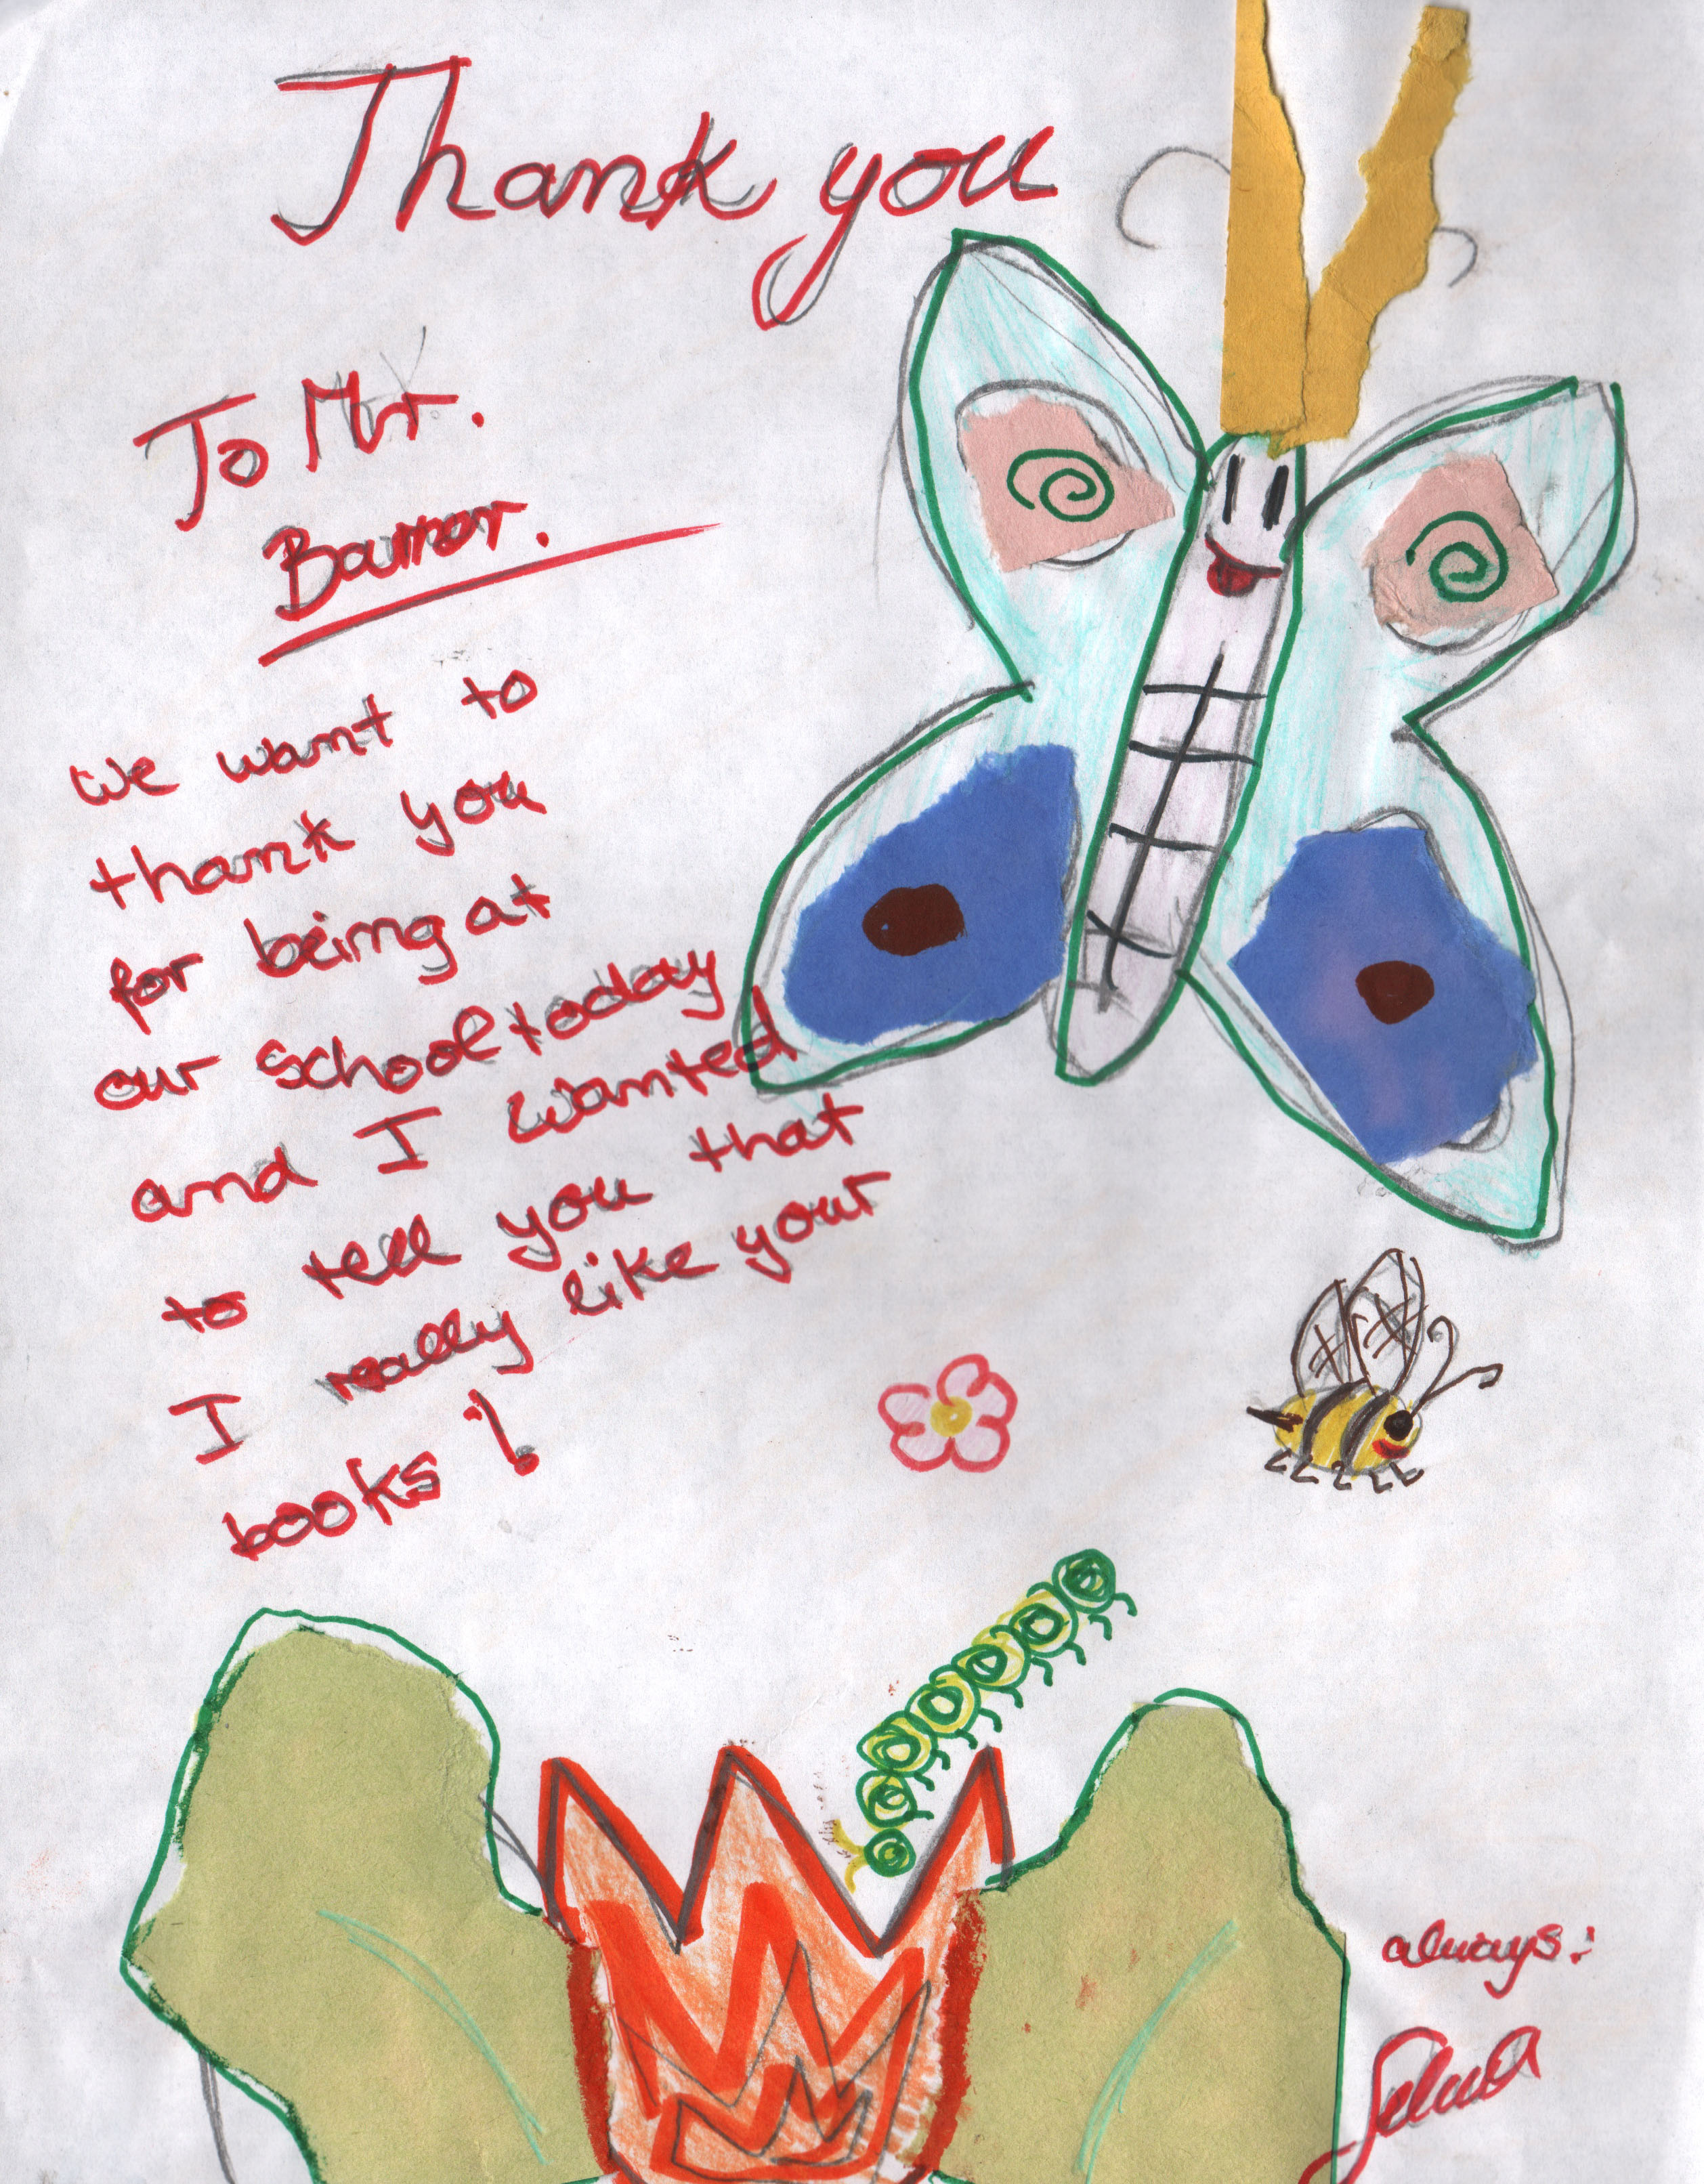 Thank you
To Mr.
Barror.
we want to
thank you
for being at
our school today
and I wanted
to tell you that
I really like your
books!
always: